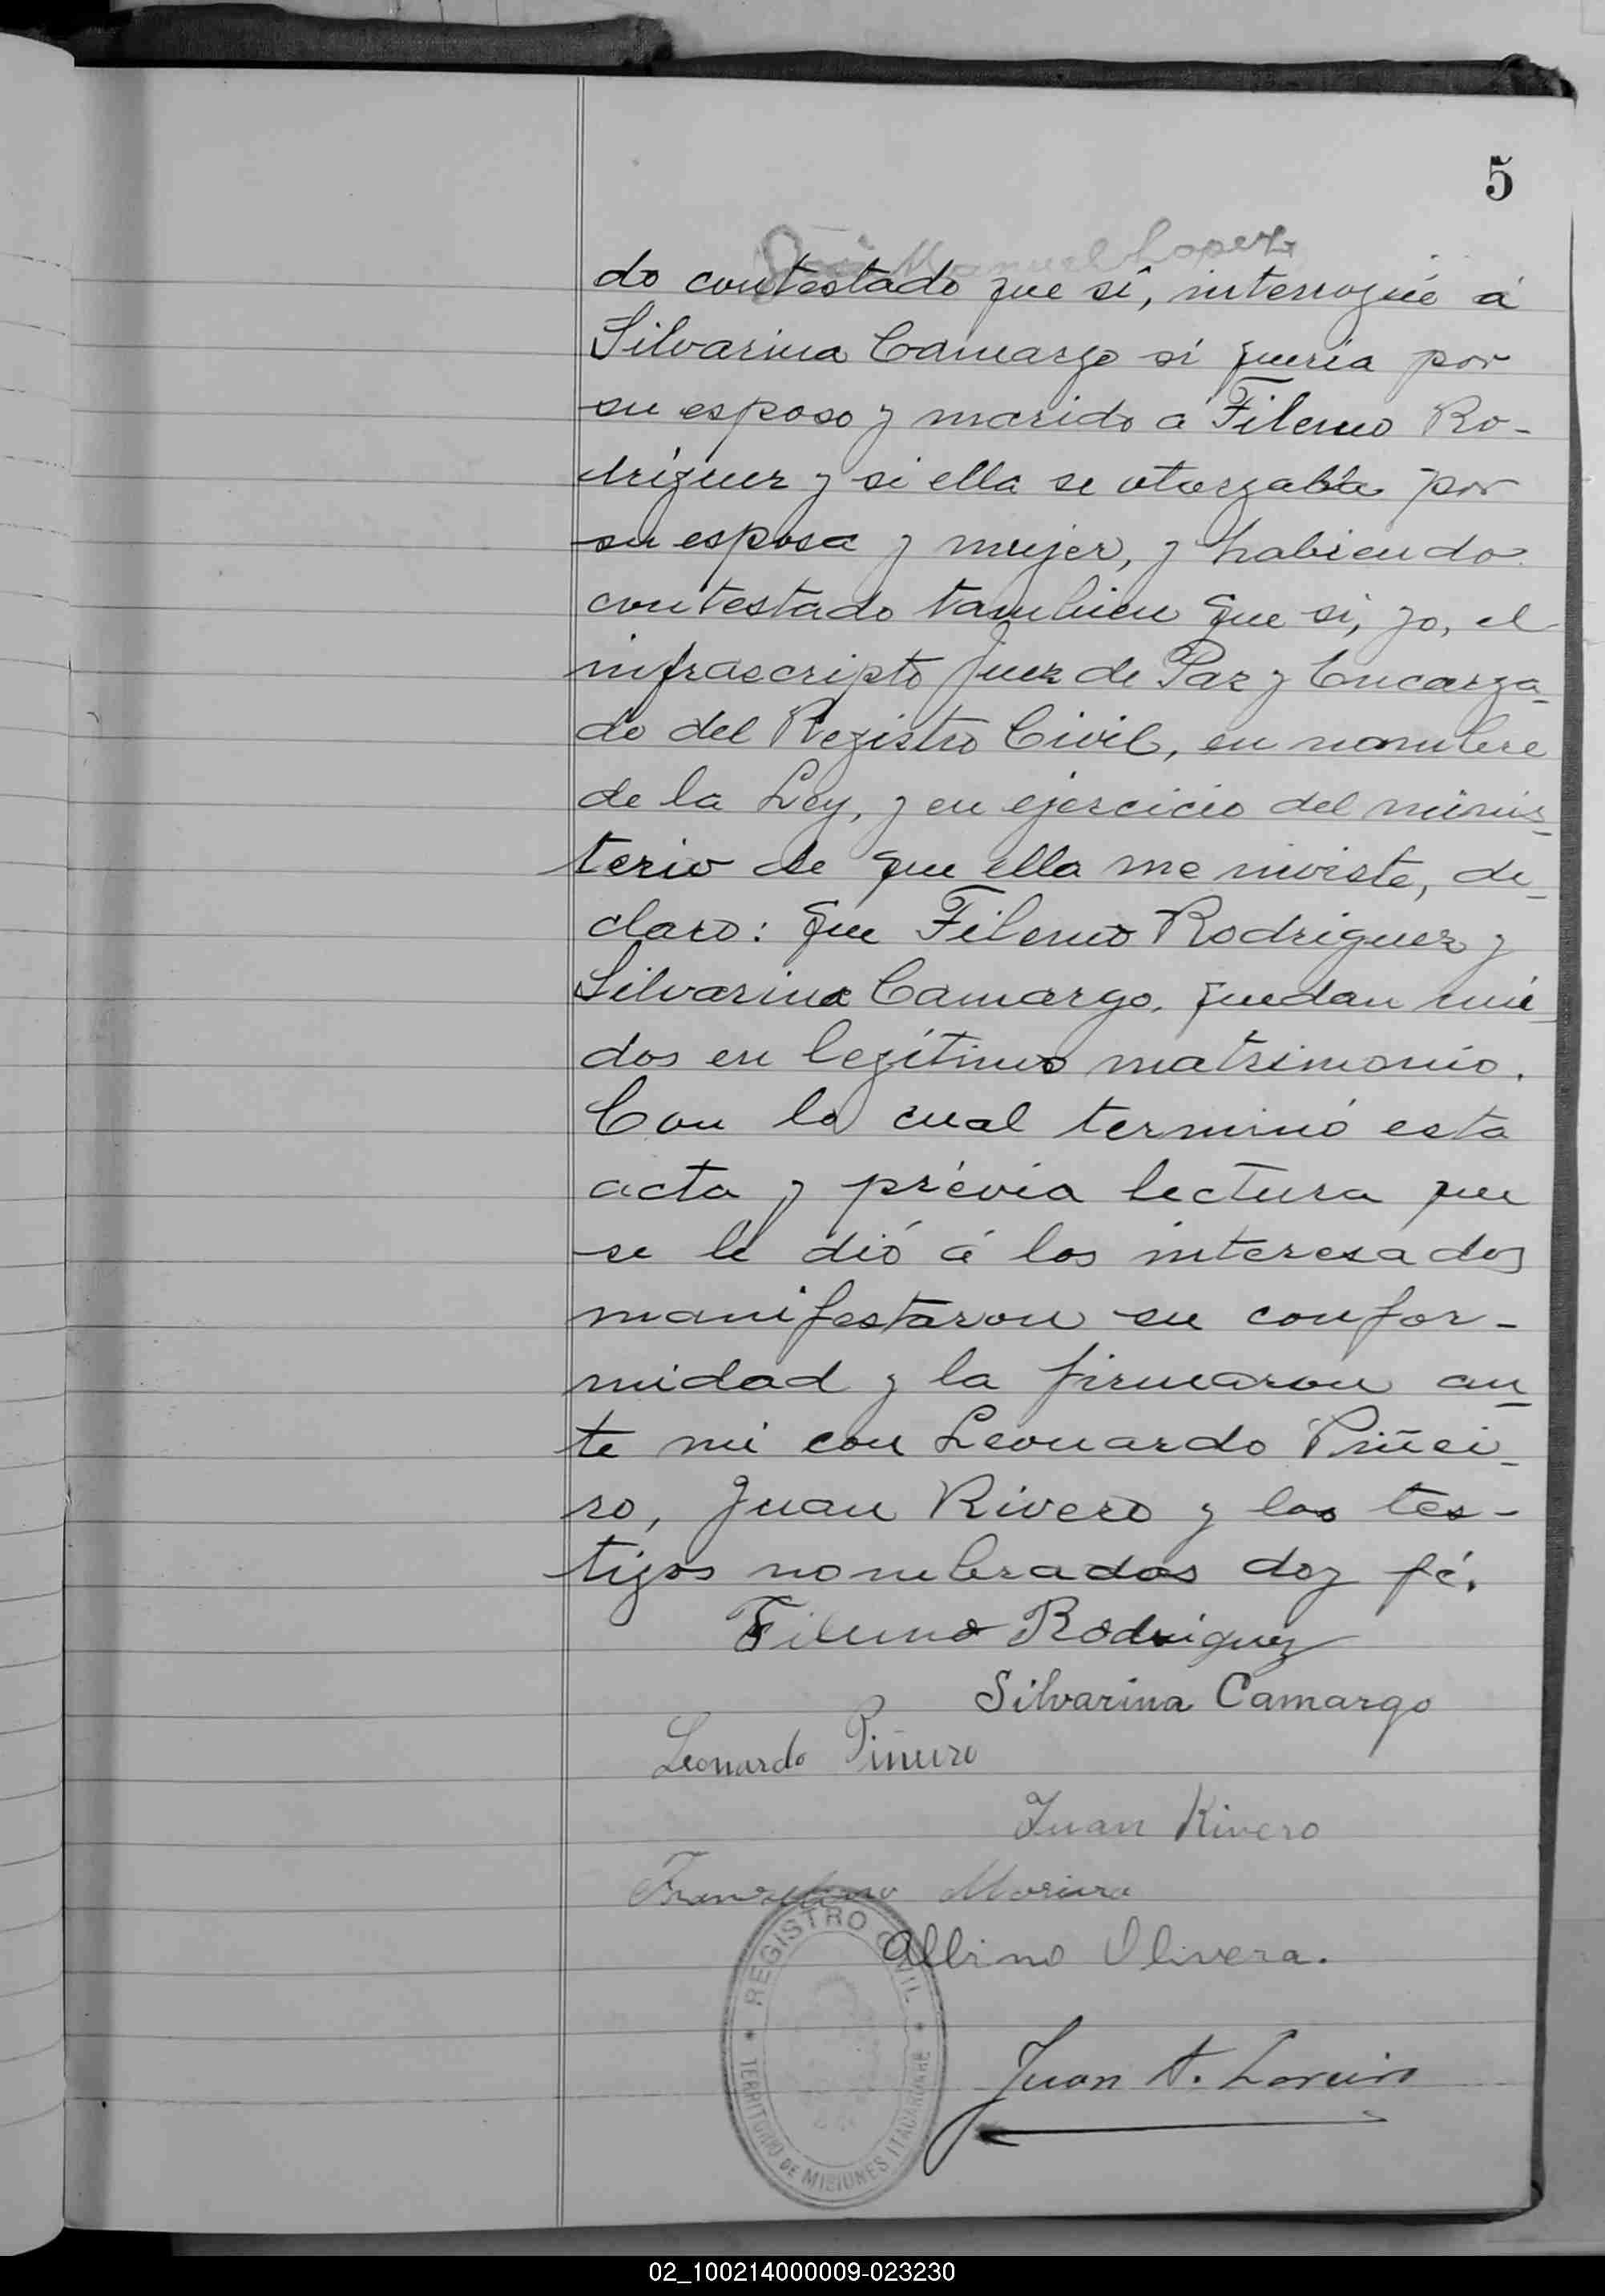 5
José Manuel Lopez
do contestado que sí, interrogué á
Silvarina Camargo si queria por
su esposo y marido a Filemo Ro-
driguez y si ella se otorgaba por
su esposa y mujer, y habiendo
contestado tambien que si, yo, el
infrascripto Juez de Paz y Encarga-
do del Registro Civil, en nombre
de la Ley, y en ejercicio del minis-
terio de que ella me inviste, de-
claro: que Filemo Rodriguez y
Silvarina Camargo, quedan uni-
dos en legítimo matrimonio.
Con lo cual terminó esta
acta y prévia lectura que
se le dió á los interesados
manifestaron su confor-
midad y la firmaron an-
te mi con Leonardo Piñei-
ro, Juan Rivero y los tes-
tigos nombrados doy fé.
Filemo Rodriguez
Silvarina Camargo
Leonardo Piñeiro
Juan Rivero
Moreira
Albino Olivera.
REGISTRO CIVIL
TERRITORIO DE MISIONES ITACARUARE
Juan A.
02_100214000009-023230